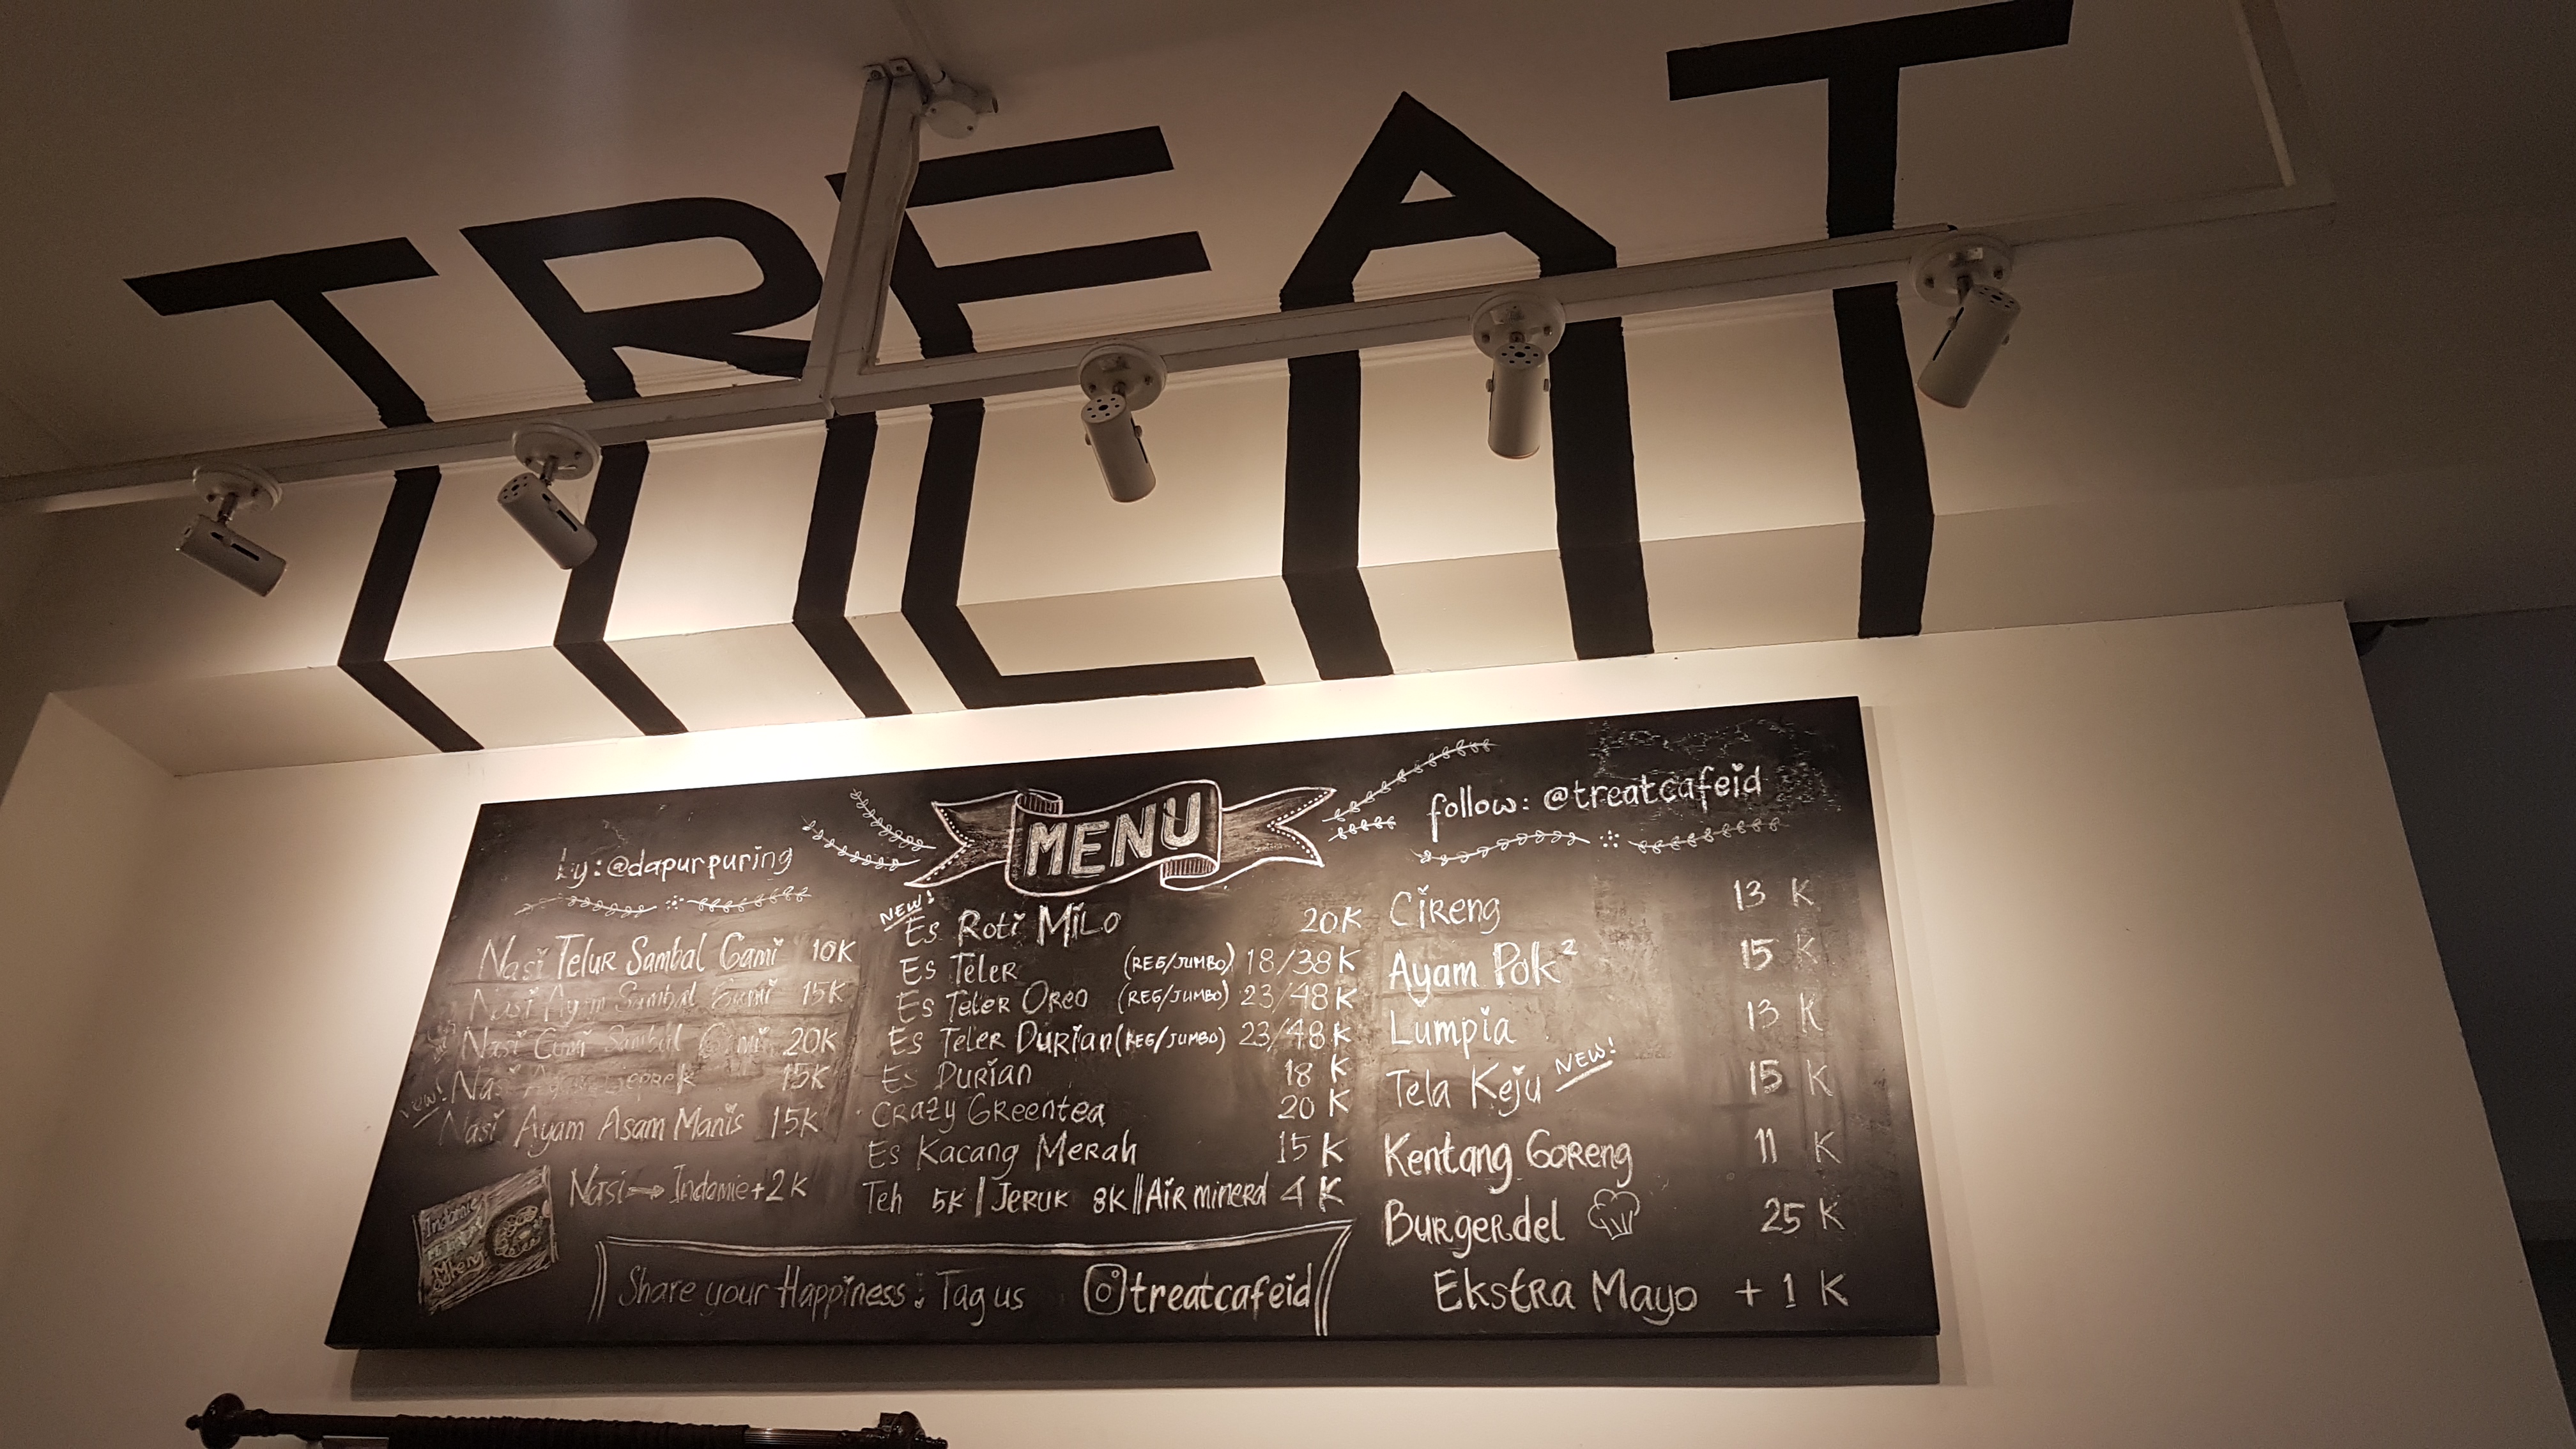 TREAT
MENU
by: @dapurpuring
Nasi Telur Sambal Gami 10K
Nasi Ayam Sambal Gami 15K
Nasi Cumi Sambal Gami 20K
Nasi Ayam Geprek 15K
New!
Nasi Ayam Asam Manis 15K
Nasi → Indomie + 2K
Indomie
Mi
Goreng
NEW!
Es Roti Milo 20K
Es Teler (REG/JUMBO) 18/38K
Es Teler Oreo (REG/JUMBO) 23/48K
Es Teler Durian (REG/JUMBO) 23/48K
Es Durian 18 K
Crazy Greentea 20 K
Es Kacang Merah 15 K
Teh 5K | Jeruk 8K || Air mineral 4 K
Share your Happiness! Tag us treatcafeid
follow: @treatcafeid
Cireng 13 K
Ayam Pok² 15 K
Lumpia 13 K
Tela Keju NEW! 15 K
Kentang Goreng 11 K
Burgerdel 25 K
Ekstra Mayo + 1 K